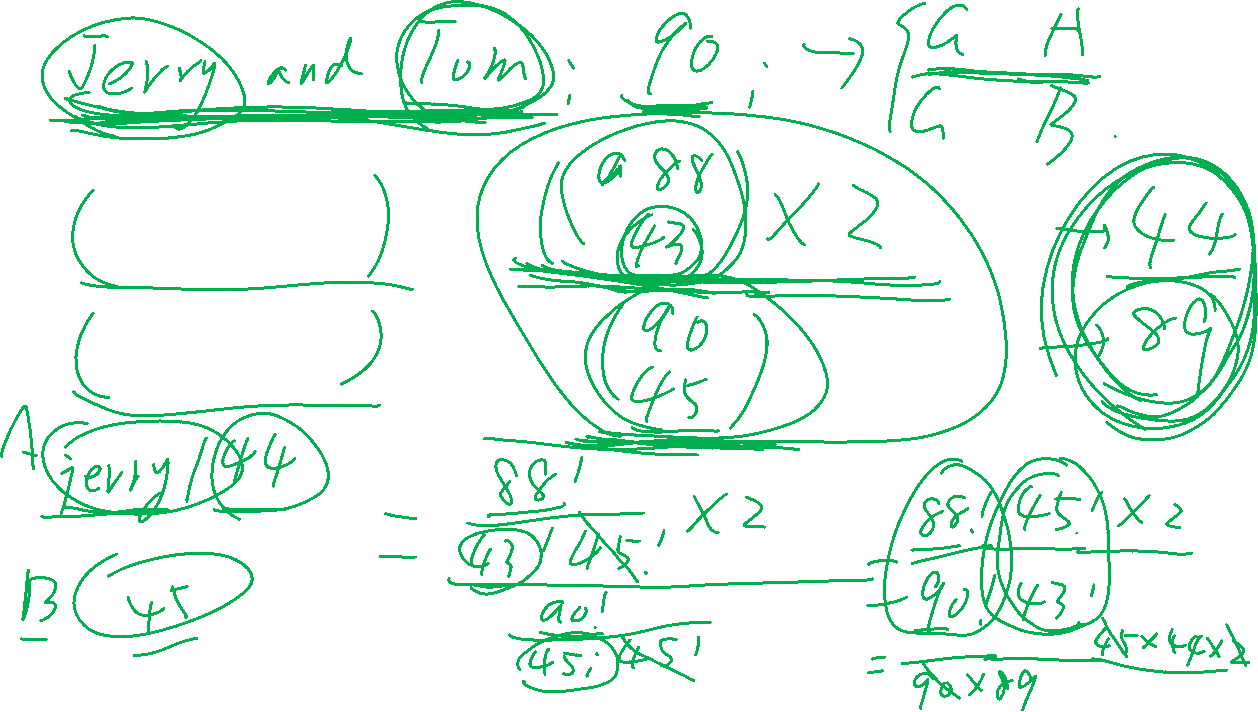 Jerry and Tom: 90. → { G A
G B.
( a 88
43 ) × 2
( 90
45 )
→ 44
→ 89
A jerry / 44
B 45
= 88!
43! 45! × 2
90!
45! 45!
= 88! 45! × 2
90! 43!
= 45×44×2
90×89